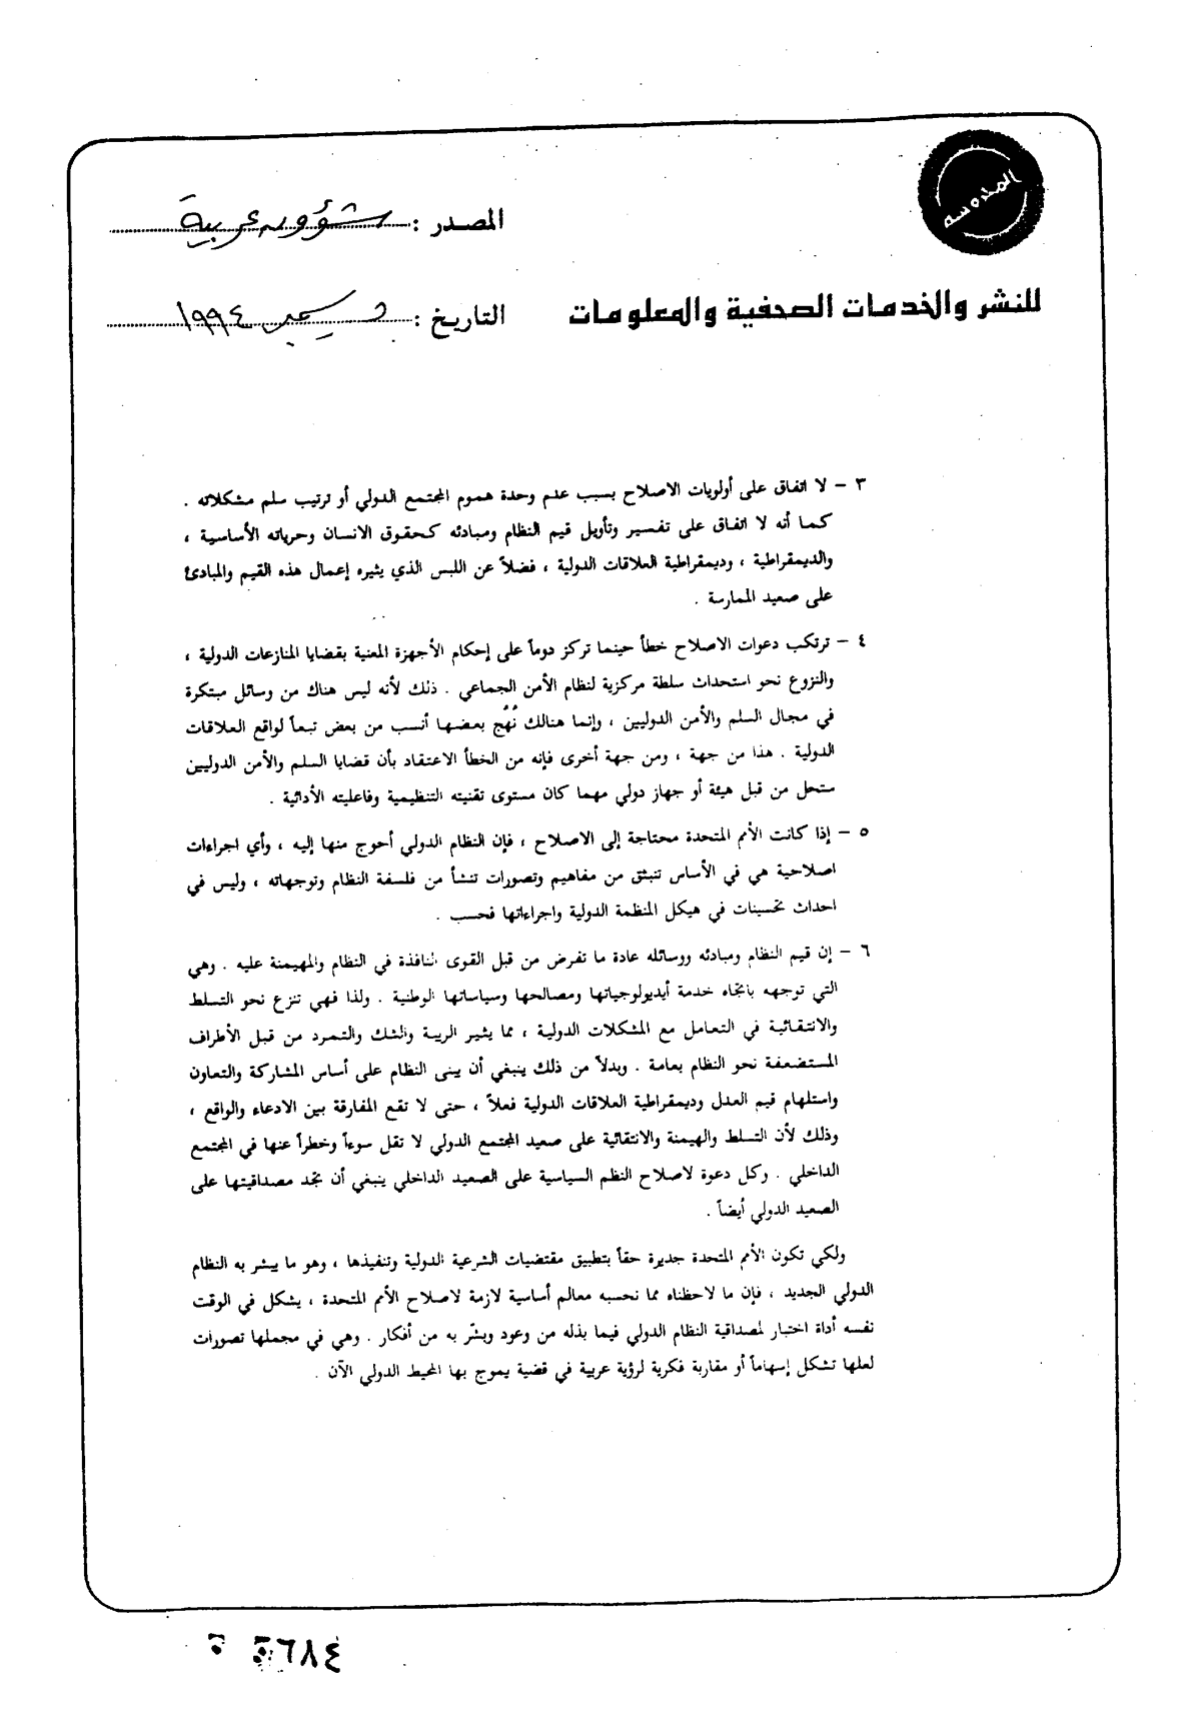 المحروسة
المصدر : شؤون عربية
للنشر والخدمات الصحفية والمعلومات
التاريخ : ديسمبر ١٩٩٤
٣ – لا اتفاق على أولويات الاصلاح بسبب عدم وحدة هموم المجتمع الدولي أو ترتيب سلم مشكلاته .
كما أنه لا اتفاق على تفسير وتأويل قيم النظام ومبادئه كحقوق الانسان وحرياته الأساسية ،
والديمقراطية ، وديمقراطية العلاقات الدولية ، فضلاً عن اللبس الذي يثيره إعمال هذه القيم والمبادئ
على صعيد الممارسة .
٤ – ترتكب دعوات الاصلاح خطأ حينما تركز دوماً على إحكام الأجهزة المعنية بقضايا المنازعات الدولية ،
والنزوع نحو استحداث سلطة مركزية لنظام الأمن الجماعي . ذلك لأنه ليس هناك من وسائل مبتكرة
في مجال السلم والأمن الدوليين ، وإنما هنالك نُهُج بعضها أنسب من بعض تبعاً لواقع العلاقات
الدولية . هذا من جهة ، ومن جهة أخرى فإنه من الخطأ الاعتقاد بأن قضايا السلم والأمن الدوليين
ستحل من قبل هيئة أو جهاز دولي مهما كان مستوى تقنيته التنظيمية وفاعليته الأدائية .
٥ – إذا كانت الأمم المتحدة محتاجة إلى الاصلاح ، فإن النظام الدولي أحوج منها إليه ، وأي اجراءات
اصلاحية هي في الأساس تنبثق من مفاهيم وتصورات تنشأ من فلسفة النظام وتوجهاته ، وليس في
احداث تحسينات في هيكل المنظمة الدولية واجراءاتها فحسب .
٦ – إن قيم النظام ومبادئه ووسائله عادة ما تفرض من قبل القوى النافذة في النظام والمهيمنة عليه . وهي
التي توجهه باتجاه خدمة أيديولوجياتها ومصالحها وسياساتها الوطنية . ولذا فهي تنزع نحو التسلط
والانتقائية في التعامل مع المشكلات الدولية ، مما يشير الريبة والشك والتمرد من قبل الأطراف
المستضعفة نحو النظام بعامة . وبدلاً من ذلك ينبغي أن يبنى النظام على أساس المشاركة والتعاون
واستلهام قيم العدل وديمقراطية العلاقات الدولية فعلاً ، حتى لا تقع المفارقة بين الادعاء والواقع ،
وذلك لأن التسلط والهيمنة والانتقائية على صعيد المجتمع الدولي لا تقل سوءاً وخطراً عنها في المجتمع
الداخلي . وكل دعوة لاصلاح النظم السياسية على الصعيد الداخلي ينبغي أن تجد مصداقيتها على
الصعيد الدولي أيضاً .
ولكي تكون الأمم المتحدة جديرة حقاً بتطبيق مقتضيات الشرعية الدولية وتنفيذها ، وهو ما يبشر به النظام
الدولي الجديد ، فإن ما لاحظناه مما نحسبه معالم أساسية لازمة لاصلاح الأمم المتحدة ، يشكل في الوقت
نفسه أداة اختبار لمصداقية النظام الدولي فيما بذله من وعود وبشّر به من أفكار . وهي في مجملها تصورات
لعلها تشكل إسهاماً أو مقاربة فكرية لرؤية عربية في قضية يموج بها المحيط الدولي الآن .